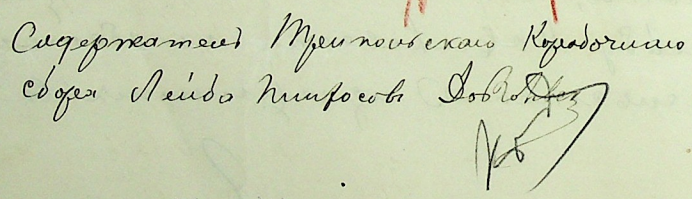 Содержатель Трипольскаго Коробочнаго
сбора Лейба Пинхосовъ